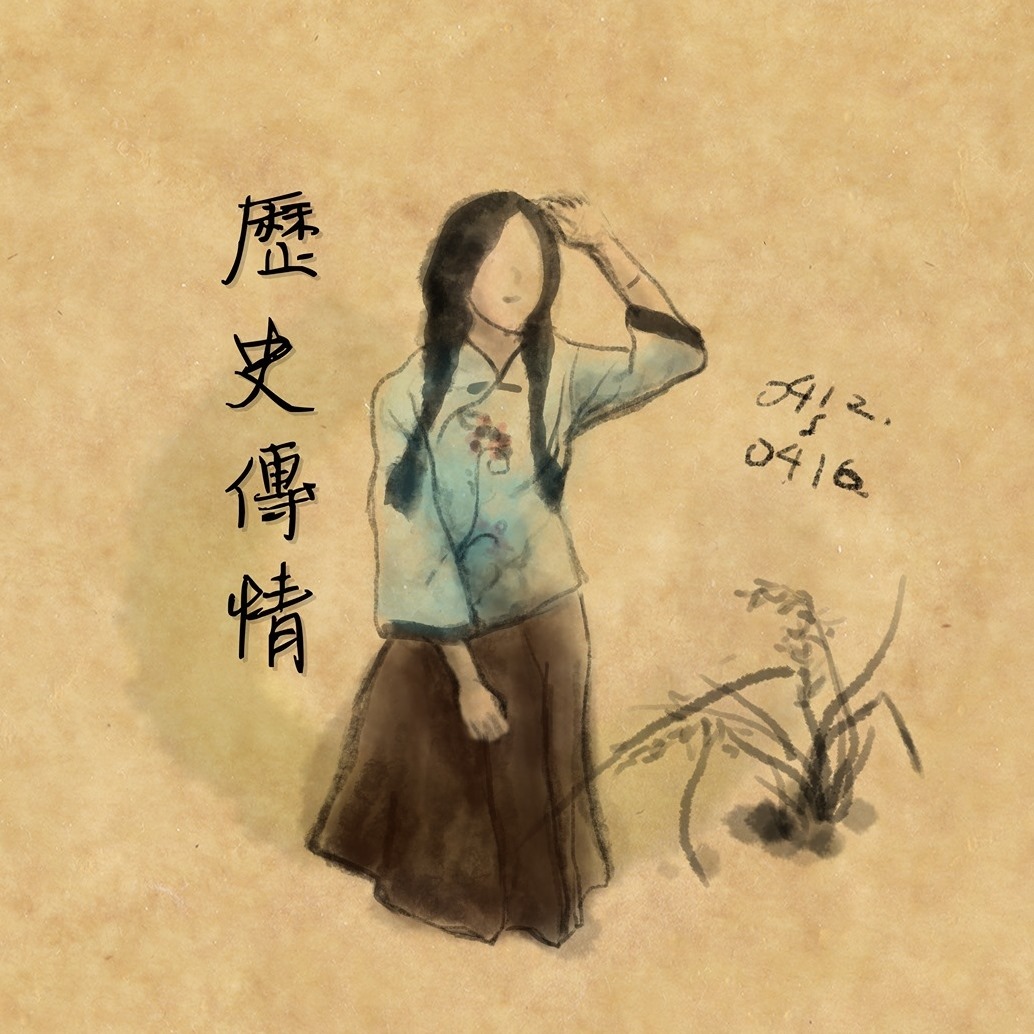 歷史傳情
0412.
~
0416